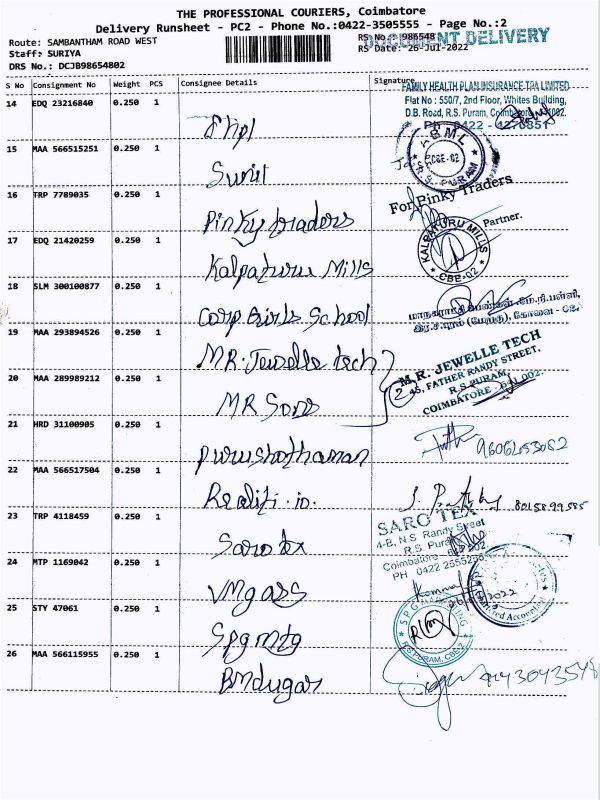 THE PROFESSIONAL COURIERS, Coimbatore
Delivery Runsheet - PC2 - Phone No.:0422-3505555 - Page No.:2
Route: SAMBANTHAM ROAD WEST
RS No.: 986548
DOCUMENT DELIVERY
Staff: SURIYA
RS Date: 26-Jul-2022
DRS No.: DCJB98654802
S No Consignment No Weight PCS Consignee Details Signature
FAMILY HEALTH PLAN INSURANCE TPA LIMITED
Flat No : 550/7, 2nd Floor, Whites Building,
D.B. Road, R.S. Puram, Coimbatore
14 EDQ 23216840 0.250 1 fhpl
15 MAA 566515251 0.250 1 Sunil
CBE-02
R.S. PURAM
16 TRP 7789035 0.250 1 Pinky traders
For Pinky Traders
Partner.
17 EDQ 21420259 0.250 1 Kalpaturu Mills
KALPATURU MILLS
CBE-02
18 SLM 300100877 0.250 1 Corp Girls School
மாநகராட்சி பெண்கள் மே.நி.பள்ளி,
இர.ச.புரம் (மேற்கு), கோவை - 02.
19 MAA 293894526 0.250 1 MR. Jewelle tech
M.R. JEWELLE TECH
45, FATHER RANDY STREET,
R.S. PURAM,
COIMBATORE - 641 002.
20 MAA 289989212 0.250 1 MR Sons
2
21 HRD 31100905 0.250 1 purushothaman
22 MAA 566517504 0.250 1 Realifi.io.
23 TRP 4118459 0.250 1 Saro tex
SARO TEX
4-B, N.S. Randy Street
R.S. Puram
Coimbatore
PH 0422
24 MTP 1169042 0.250 1 VMg ass
2022
25 STY 47061 0.250 1 Spg mtg
R.S. PURAM, CBE-2
26 MAA 566115955 0.250 1 BMdugar